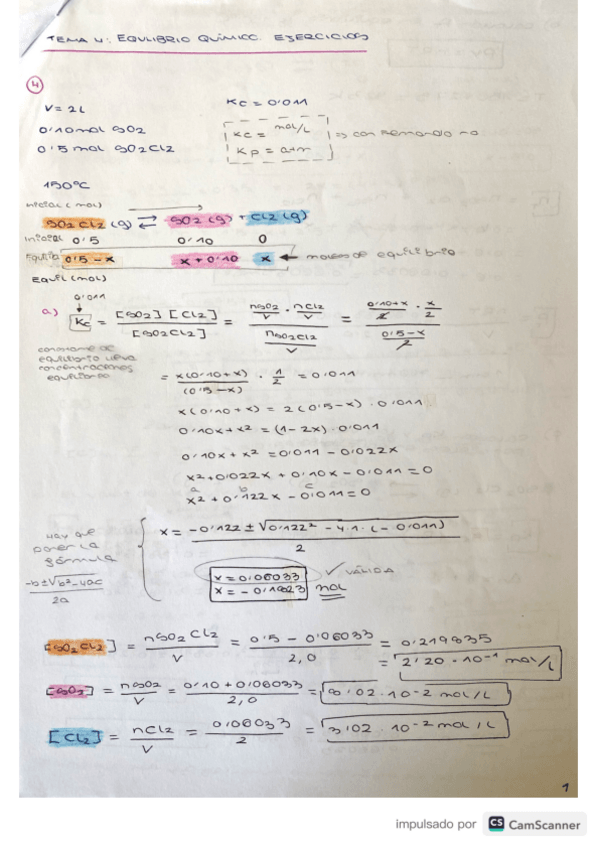 TEMA 4: EQULIBRIO QUÍMICO. EJERCICIOS
4
V = 2L
Kc = 0'011
0'10 mol SO2
0'5 mol SO2Cl2
Kc = mol/L
Kp = atm
=> con Remando no
150ºC
inicial (mol)
SO2Cl2 (g) ⇄ SO2 (g) + Cl2 (g)
Inicial 0'5 0'10 0
Equilib 0'5-x x+0'10 x ← moles de equilibrio
Equil (mol)
0'011
a) Kc = [SO2] [Cl2] / [SO2Cl2] = (nSO2/V · nCl2/V) / (nSO2Cl2/V) = ((0'10+x)/2 · x/2) / ((0'5-x)/2)
constante de
equilibrio lleva
concentraciones
equilibrio
= x(0'10+x) / (0'5-x) · 1/2 = 0'011
x(0'10+x) = 2(0'5-x) · 0'011
0'10x+x² = (1-2x) · 0'011
0'10x + x² = 0'011 - 0'022x
x²+0'022x + 0'10x - 0'011 = 0
a b c
x² + 0'122x - 0'011 = 0
Hay que
poner la
fórmula
-b±√b²-4ac / 2a
x = -0'122 ± √0'122² - 4·1·(-0'011) / 2
x = 0'06033 ✓ VÁLIDA
x = -0'1823 mol
[SO2Cl2] = nSO2Cl2 / V = 0'5 - 0'06033 / 2,0 = 0'219835
= 2'20 · 10⁻¹ mol/L
[SO2] = nSO2 / V = 0'10 + 0'06033 / 2,0 = 8'02 · 10⁻² mol/L
[Cl2] = nCl2 / V = 0'06033 / 2 = 3'02 · 10⁻² mol/L
1
impulsado por CS CamScanner